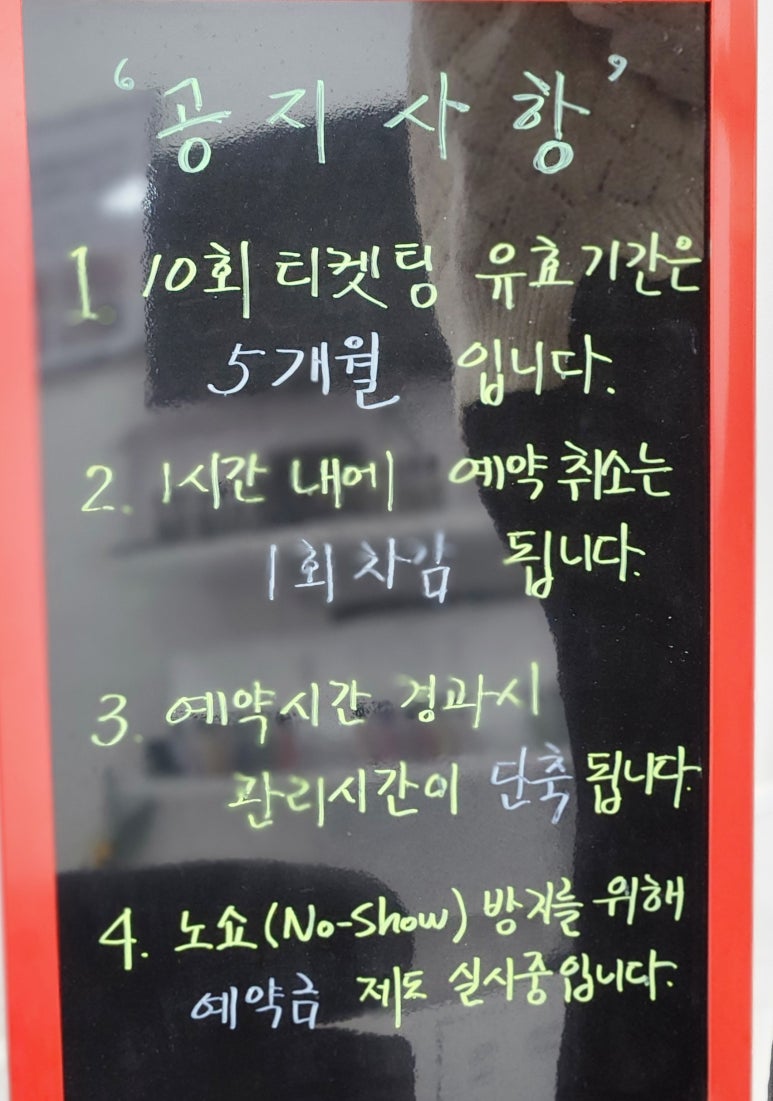 ‘공지사항’
1. 10회 티켓팅 유효기간은
5개월 입니다.
2. 1시간 내에 예약취소는
1회 차감 됩니다.
3. 예약시간 경과시
관리시간이 단축 됩니다.
4. 노쇼(No-Show) 방지를 위해
예약금 제도 실시중입니다.